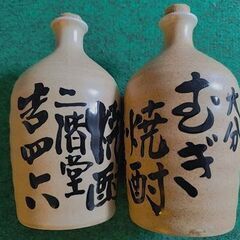 焼酎
二階堂
吉四六
大分
むぎ
焼酎